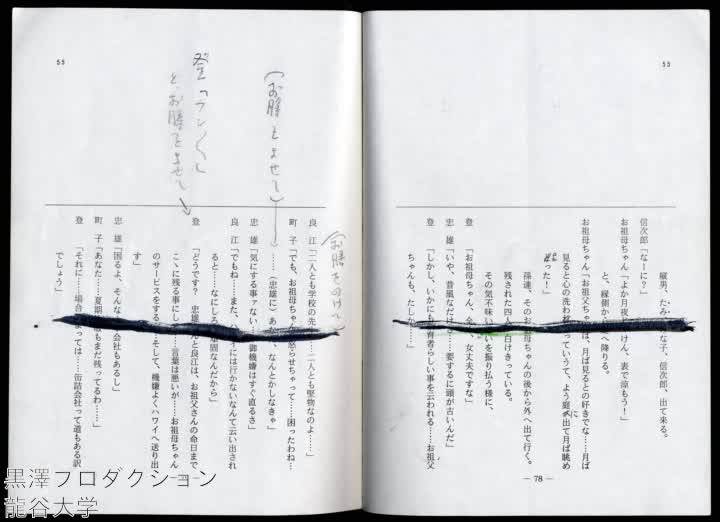 55
縦男、たみ、みな子、信次郎、出て来る。
信次郎「なーに?」
お祖母ちゃん「よか月夜じゃけん、表で涼もう!」
と、縁側から庭へ降りる。
お祖母ちゃん「お祖父ちゃんは、月ば見るとの好きでな……月ば
見ると心の洗わ
っていうて、よう庭
出て月ば眺め
った!」
孫達、そのお祖母ちゃんの後から外へ出て行く。
残された四人、白けきっている。
その気不味い
いを振り払う様に、
登 「お祖母ちゃん、
女丈夫ですな」
忠 雄「いや、昔風なだけ
……要するに頭が古いんだ」
登 「しかし、いかにも
有者らしい事を云われる……お祖父
ちゃんも、たしか……」
― 78 ―
55
(お膳をのけて)
良 江「二人とも学校の先
……二人とも堅物なのよ……」
町 子「でも、お祖母ちゃん
怒らせちゃって……困ったわね…
(お膳をよせて)
……(忠雄に)あ
、なんとかしなきゃ」
忠 雄「気にする事ァない
御機嫌はすぐ直るさ」
良 江「でもね……また、ハワイには行かないなんて云い出され
ると……なにしろ
頑固なんだから」
登 「どうです? 忠雄さんと良江は、お祖父さんの命日まで
こゝに残る事にし
……言葉は悪いが……お祖母ちゃん
のサービスをする
そして、機嫌よくハワイへ送り出
す」
と、お膳をよせて
忠 雄「困るよ、そんな
会社もあるし」
町 子「あなた……夏期
もまだ残ってるわ……」
登 「それに……場合
よっては……缶詰会社って道もある訳
でしょう」
黒澤プロダクション
龍谷大学